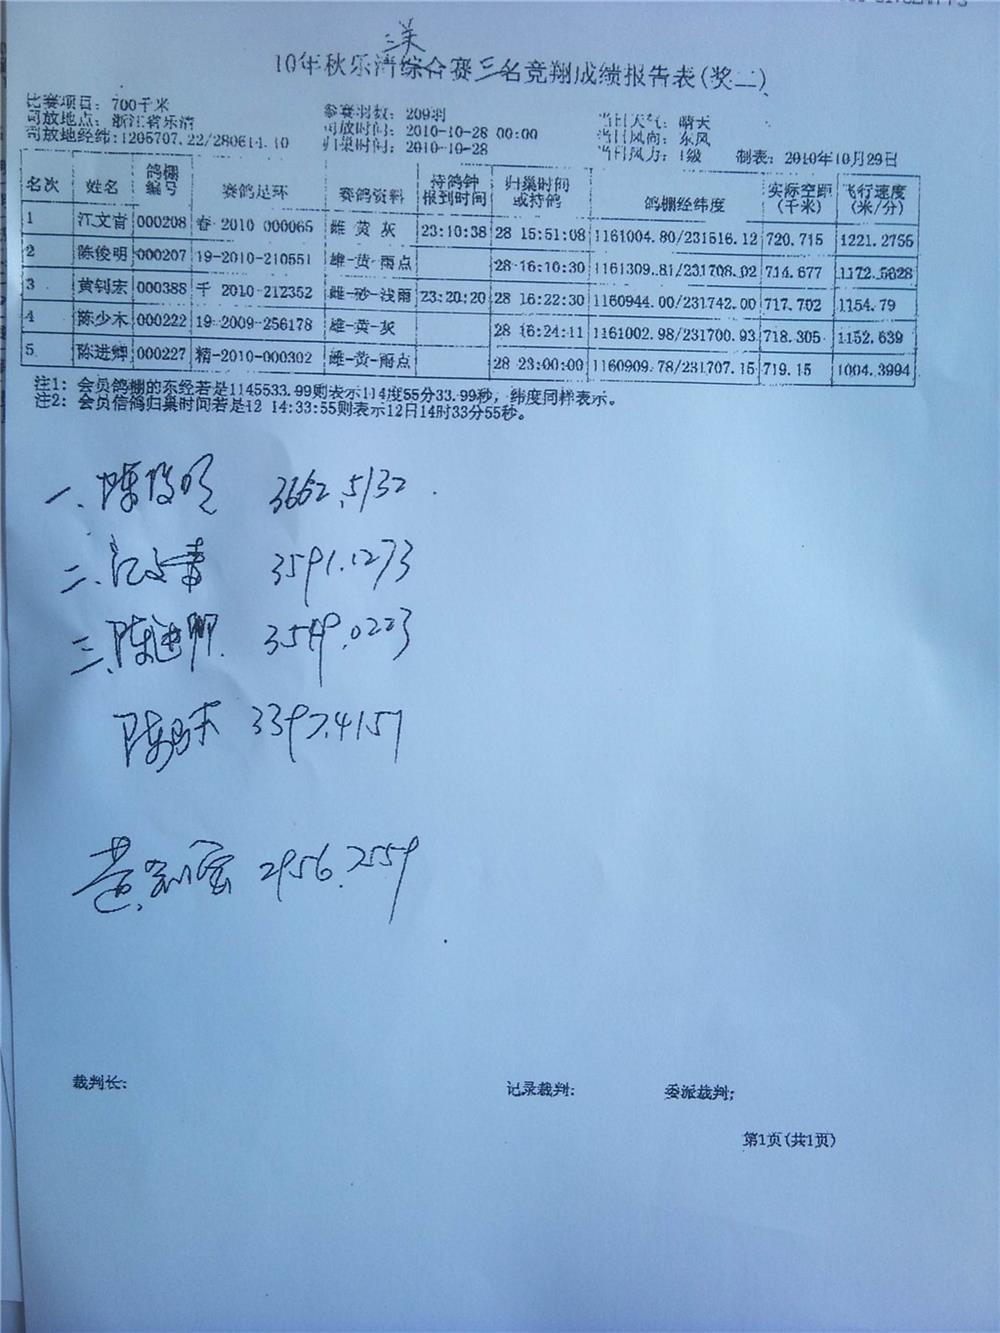 三关
10年秋乐清综合赛三名竞翔成绩报告表(奖二)
比赛项目: 700千米 参赛羽数: 209羽 当日天气: 晴天
司放地点: 浙江省乐清 司放时间: 2010-10-28 00:00 当日风向: 东风
司放地经纬:1205707.22/280614.10 归巢时间: 2010-10-28 当日风力: 1级 制表: 2010年10月29日
名次 姓名 鸽棚编号 赛鸽足环 赛鸽资料 持鸽钟报到时间 归巢时间或持鸽 鸽棚经纬度 实际空距(千米) 飞行速度(米/分)
1 江文富 000208 春-2010-000065 雌 黄 灰 23:10:38 28 15:51:08 1161004.80/231516.12 720.715 1221.2755
2 陈俊明 000207 19-2010-210551 雄-黄-雨点 28 16:10:30 1161309.81/231708.02 714.677 1172.5628
3 黄钊宏 000388 千 2010-212352 雌-砂-浅雨 23:20:20 28 16:22:30 1160944.00/231742.00 717.702 1154.79
4 陈少木 000222 19-2009-256178 雄-黄-灰 28 16:24:11 1161002.98/231700.93 718.305 1152.639
5 陈进卿 000227 精-2010-000302 雌-黄-雨点 28 23:00:00 1160909.78/231707.15 719.15 1004.3994
注1: 会员鸽棚的东经若是1145533.99则表示114度55分33.99秒, 纬度同样表示。
注2: 会员信鸽归巢时间若是12 14:33:55则表示12日14时33分55秒。
一、陈俊明 3662.5132
二、江文 3591.1273
三、陈进卿 3549.0223
陈 3397.4157
黄钊宏 2956.7559
裁判长: 记录裁判: 委派裁判:
第1页(共1页)